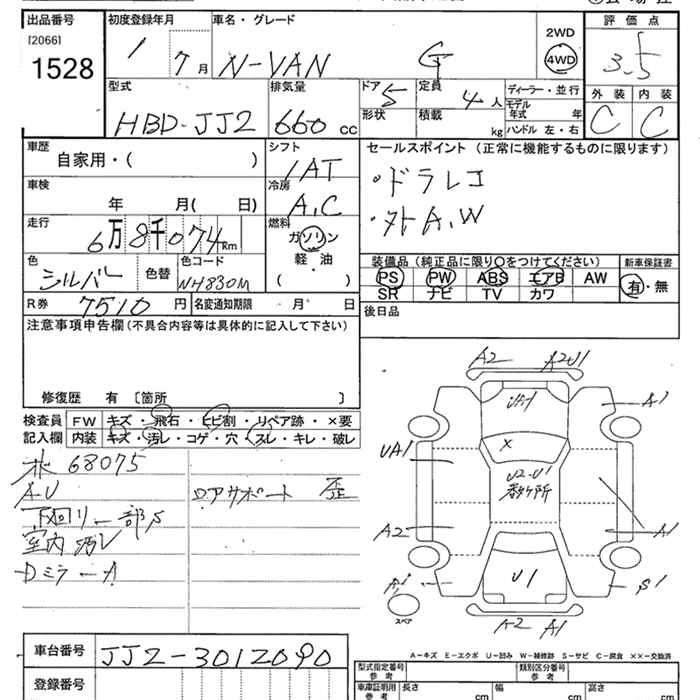 出品番号 [2066] 1528
初度登録年月 1 7月
車名・グレード N-VAN G
2WD 4WD
評価点 3.5
外装 C 内装 C
型式 HBD-JJ2
排気量 660 cc
ドア 5 形状
定員 4人
積載 kg
ディーラー・並行
モデル年式 年
ハンドル 左・右
車歴 自家用・( )
シフト IAT
セールスポイント (正常に機能するものに限ります)
・ドラレコ
・外A.W
車検 年 月( 日)
冷房 A.C
走行 6万8千074Km
燃料 ガソリン 軽・油 ( )
色 シルバー 色替
色コード NH830M
装備品 (純正品に限り○をつけてください)
新車保証書 有・無
PS PW ABS エアB AW
SR ナビ TV カワ
R券 7510円
名変通知期限 ・月 ・日
後日品
注意事項申告欄 (不具合内容等は具体的に記入して下さい)
修復歴 有 〔箇所 〕
検査員記入欄
FW キズ・飛石・ヒビ割・リペア跡・×要
内装 キズ・汚レ・コゲ・穴・スレ・キレ・破レ
水 68075
A-U
下廻り一部S
室内汚レ
DミラーA
ロアサポート 歪
A2 A2U1
A1
UA1
X
U2-U1
数ヶ所
A2
A1
U1
S1
スペア
A2 A1
A-キズ E-エクボ U-凹ミ W-補修跡 S-サビ C-腐食 ××-交換済
車台番号 JJ2-3012090
登録番号
型式指定番号 参考
類別区分番号 参考
車庫証明用 参考
長さ cm 幅 cm 高さ cm